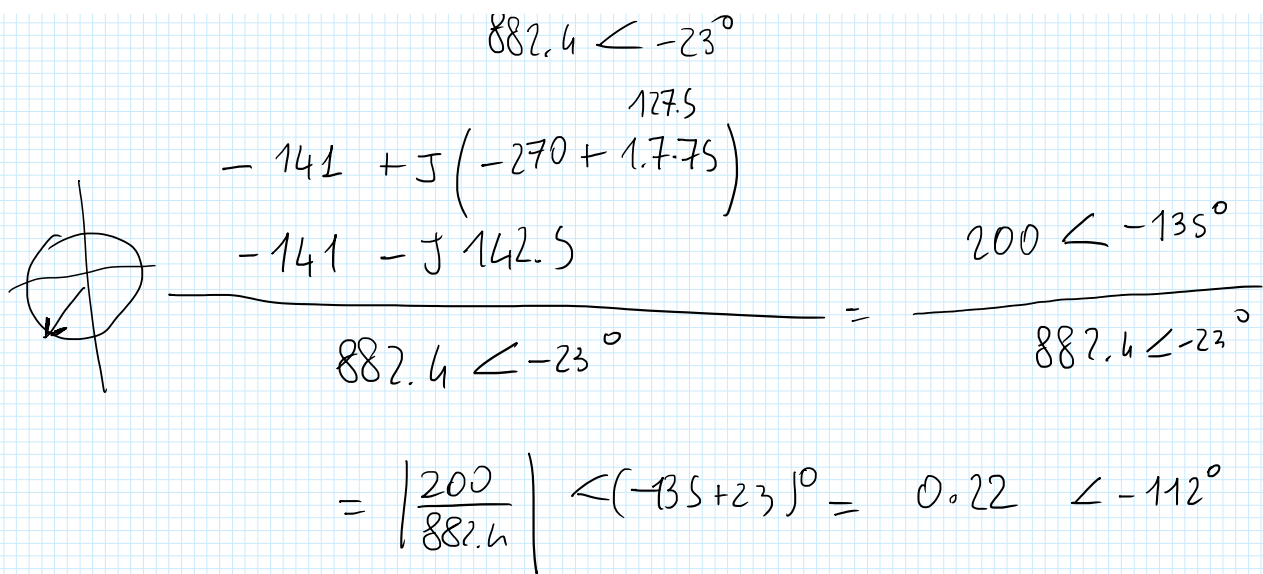 882.4 < -23°
127.5
- 141 + J(-270 + 1.7.75)
-141 - J 142.5
200 < -135°
=
882.4 < -23°
882.4 < -23°
= |200/882.4| <(-135+23)° = 0.22 < -112°